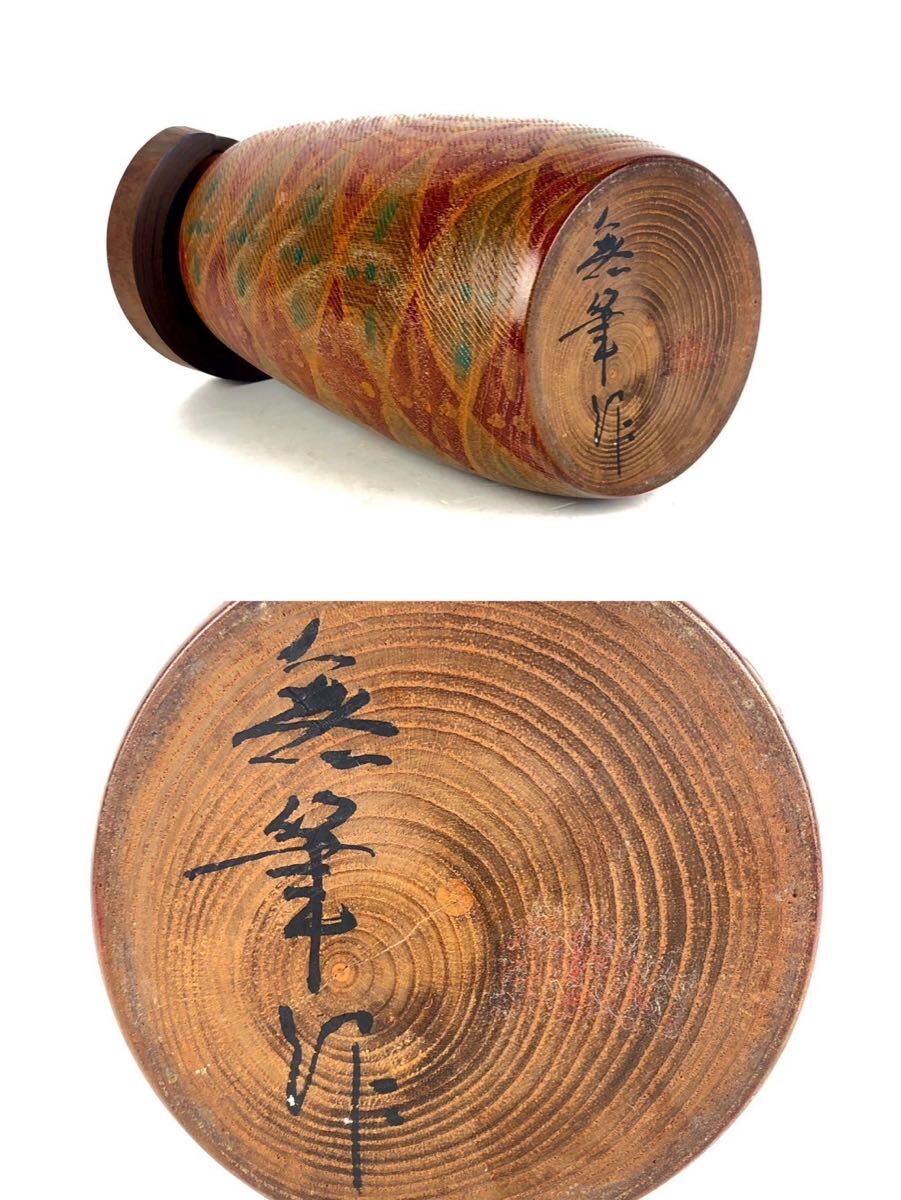 無筆作
無筆作